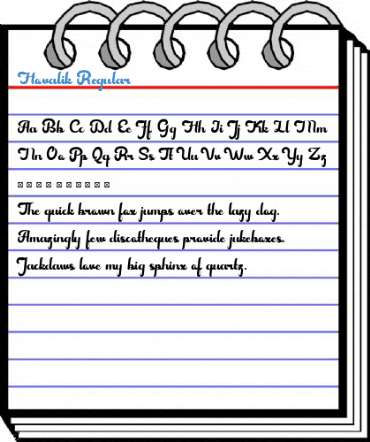 Havalik Regular
Aa Bb Cc Dd Ee Ff Gg Hh Ii Jj Kk Ll Mm
Nn Oo Pp Qq Rr Ss Tt Uu Vv Ww Xx Yy Zz
The quick brown fox jumps over the lazy dog.
Amazingly few discotheques provide jukeboxes.
Jackdaws love my big sphinx of quartz.